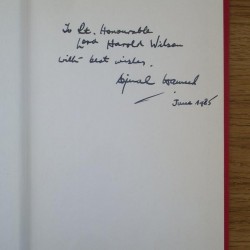 To Rt. Honourable
Lord Harold Wilson
with best wishes.
June 1985